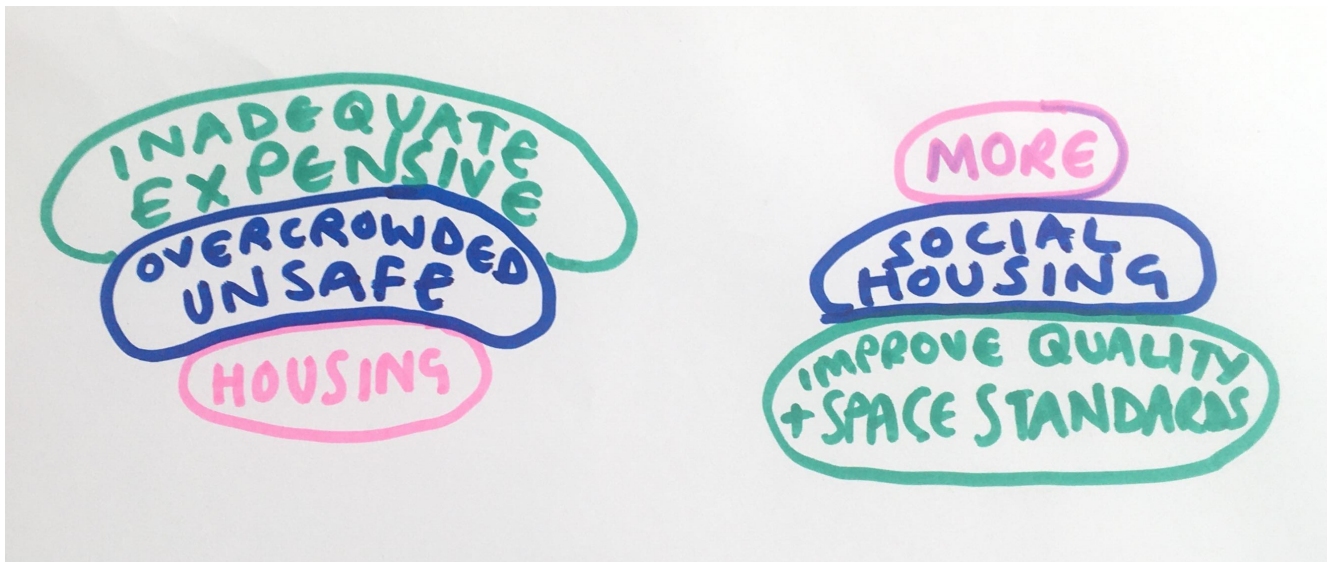 INADEQUATE
EXPENSIVE
OVERCROWDED
UNSAFE
HOUSING
MORE
SOCIAL
HOUSING
IMPROVE QUALITY
+ SPACE STANDARDS